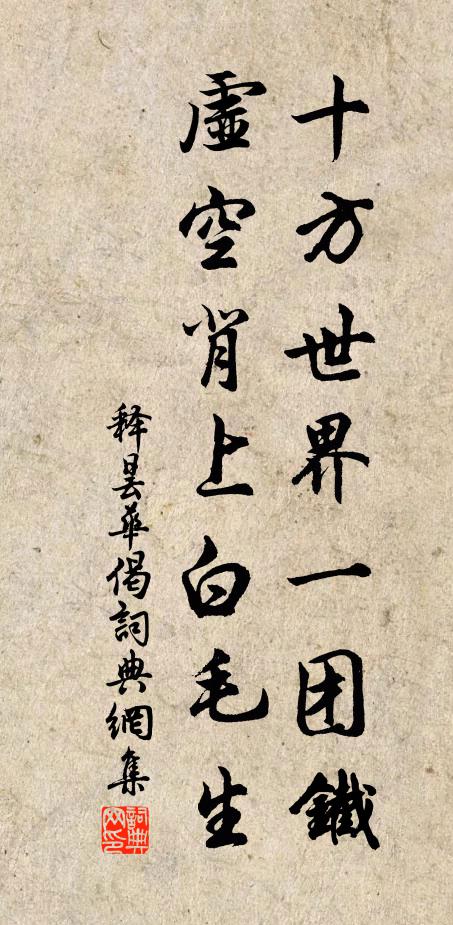 十方世界一团鐵
虛空背上白毛生
释曇華偈詞典網集
詞典网印